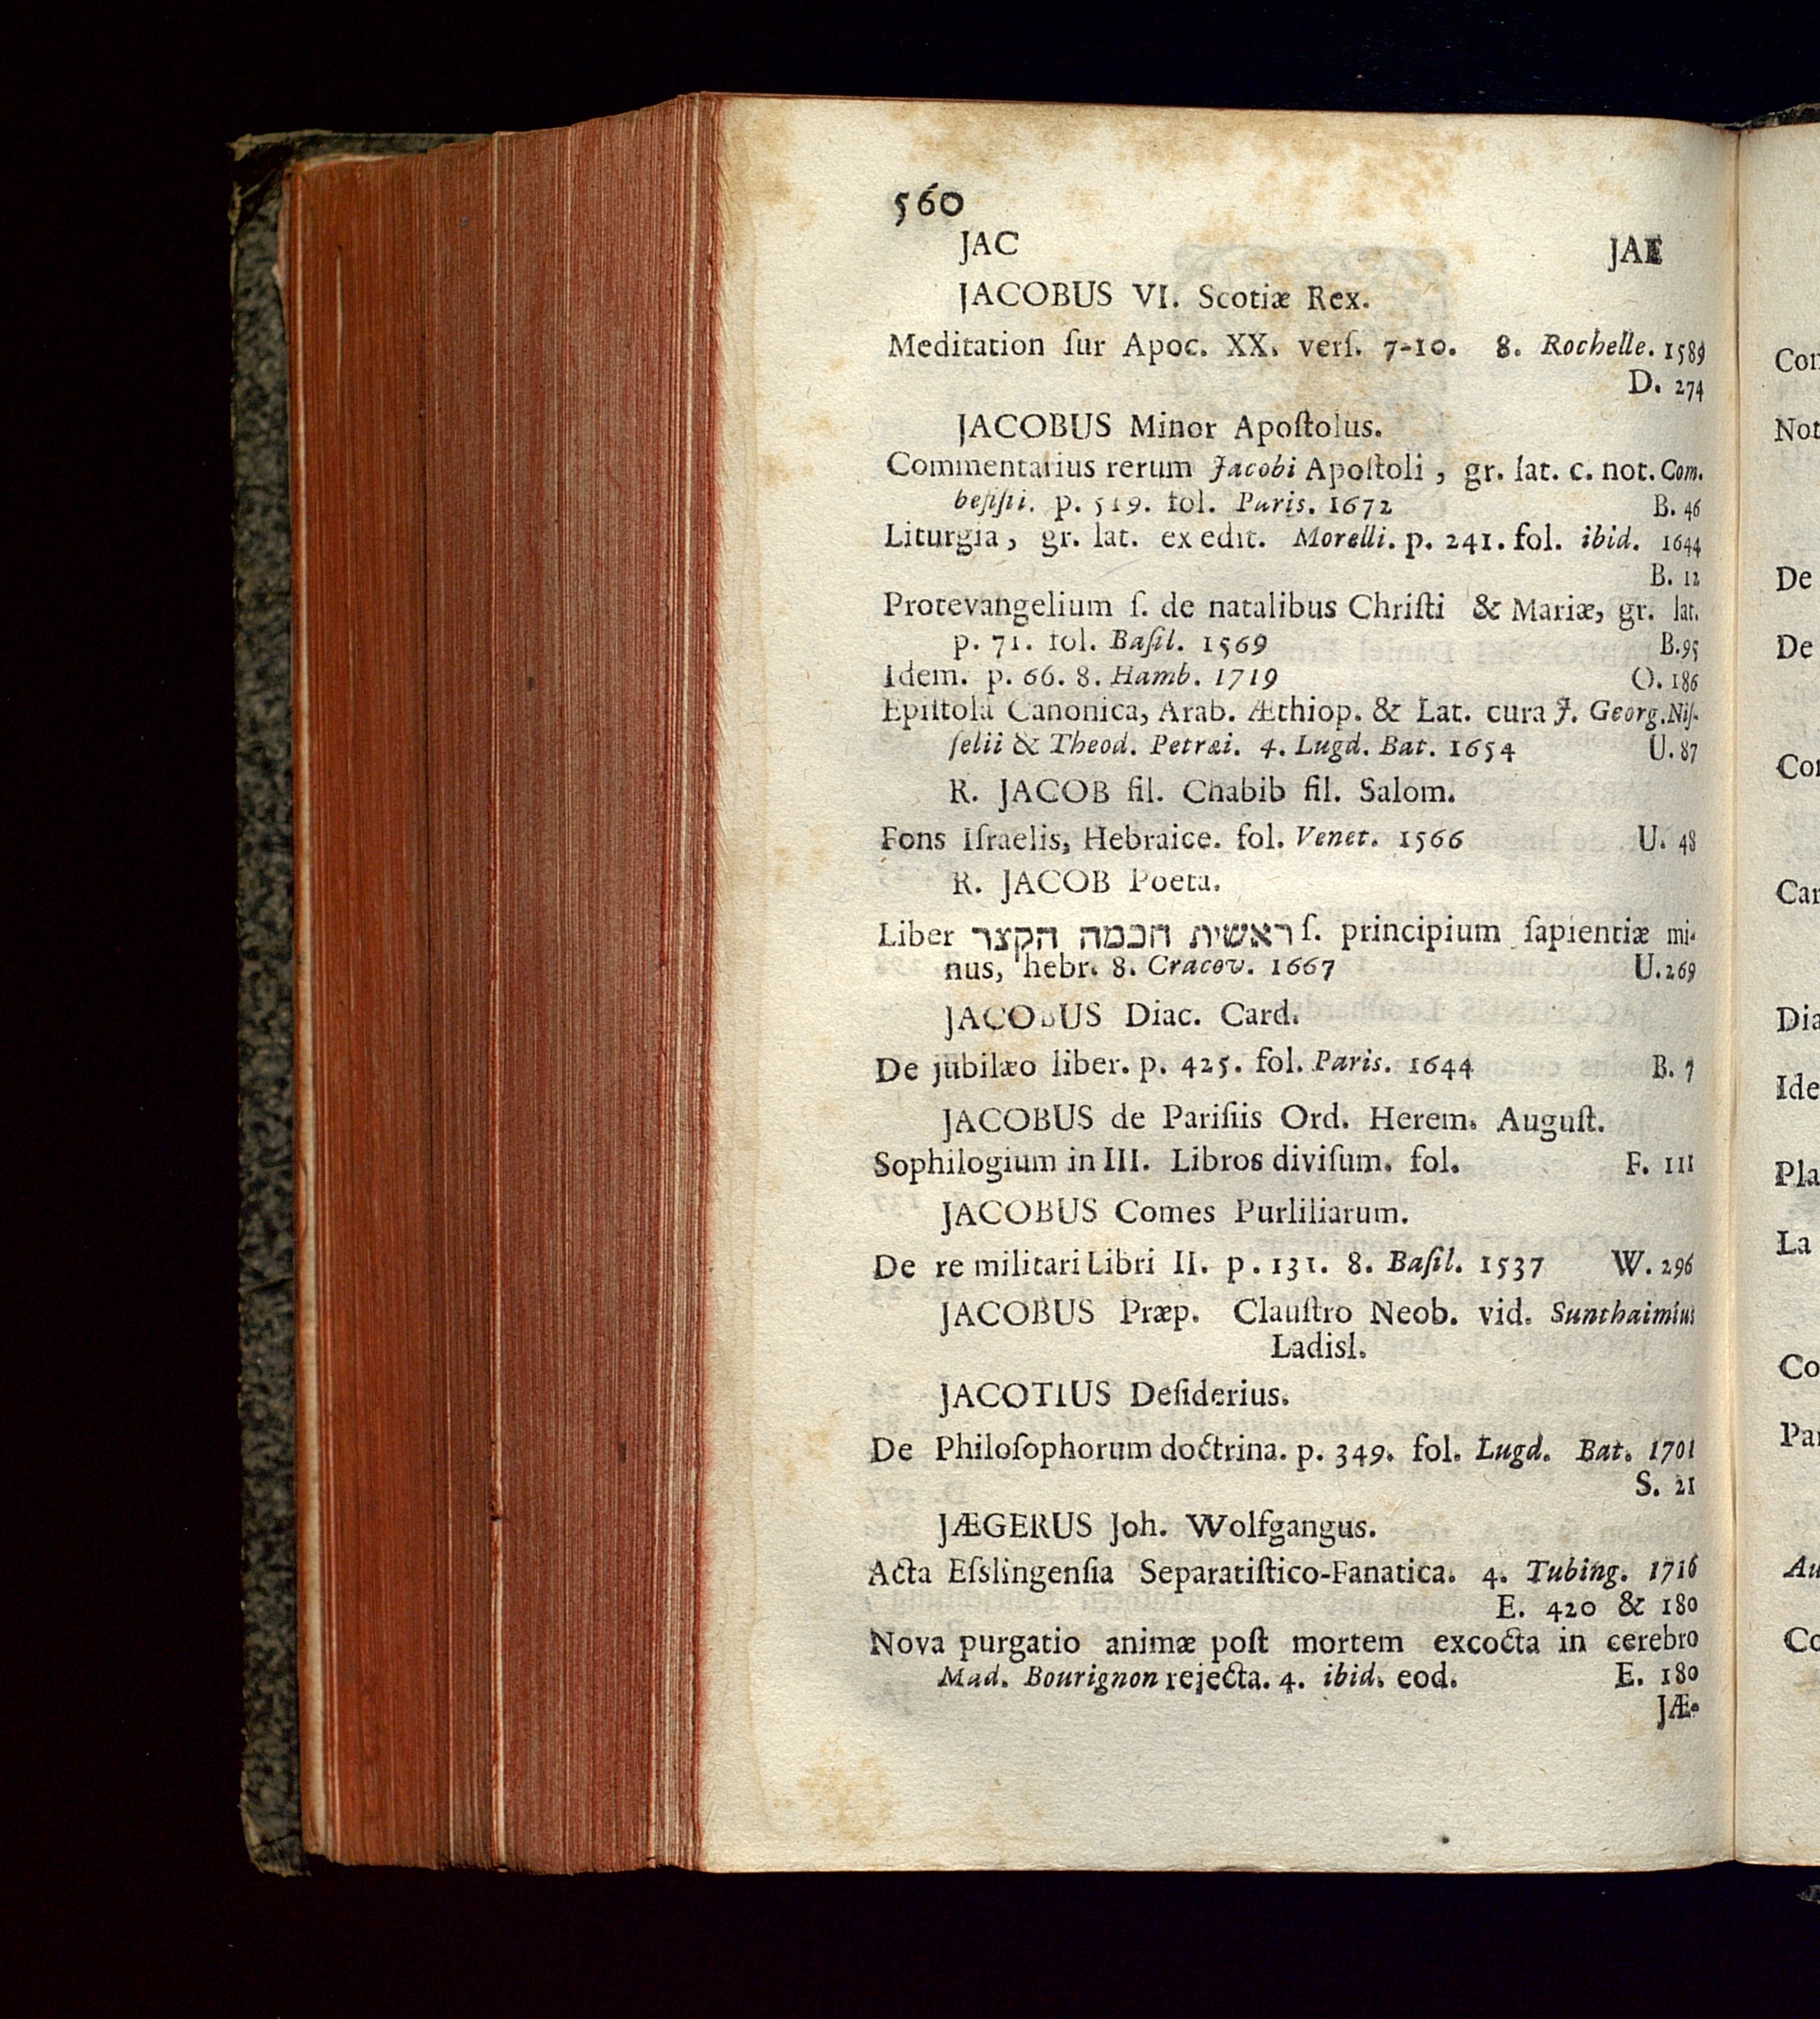 560
JAC JAE
JACOBUS VI. Scotiæ Rex.
Meditation ſur Apoc. XX. verſ. 7-10. 8. Rochelle. 1589
D. 274
JACOBUS Minor Apoſtolus.
Commentarius rerum Jacobi Apoſtoli, gr. lat. c. not. Com.
beſiſii. p. 519. fol. Paris. 1672 B. 46
Liturgia, gr. lat. ex edit. Morelli. p. 241. fol. ibid. 1644
B. 12
Protevangelium ſ. de natalibus Chriſti & Mariæ, gr. lat.
p. 71. fol. Baſil. 1569 B. 95
Idem. p. 66. 8. Hamb. 1719 O. 186
Epiſtola Canonica, Arab. Æthiop. & Lat. cura J. Georg. Niſ-
ſelii & Theod. Petræi. 4. Lugd. Bat. 1654 U. 87
R. JACOB fil. Chabib fil. Salom.
Fons Iſraelis, Hebraice. fol. Venet. 1566 U. 48
R. JACOB Poeta.
Liber ראשית חכמה הקצר ſ. principium ſapientiæ mi-
nus, hebr. 8. Cracov. 1667 U. 269
JACOBUS Diac. Card.
De jubilæo liber. p. 425. fol. Paris. 1644 B. 7
JACOBUS de Pariſiis Ord. Herem. Auguſt.
Sophilogium in III. Libros diviſum. fol. F. 111
JACOBUS Comes Purliliarum.
De re militari Libri II. p. 131. 8. Baſil. 1537 W. 296
JACOBUS Præp. Clauſtro Neob. vid. Sunthaimius
Ladisl.
JACOTIUS Deſiderius.
De Philoſophorum doctrina. p. 349. fol. Lugd. Bat. 1701
S. 21
JÆGERUS Joh. Wolfgangus.
Acta Eſslingenſia Separatiſtico-Fanatica. 4. Tubing. 1716
E. 420 & 180
Nova purgatio animæ poſt mortem excocta in cerebro
Mad. Bourignon rejecta. 4. ibid. eod. E. 180
JÆ-
Not
De
De
La